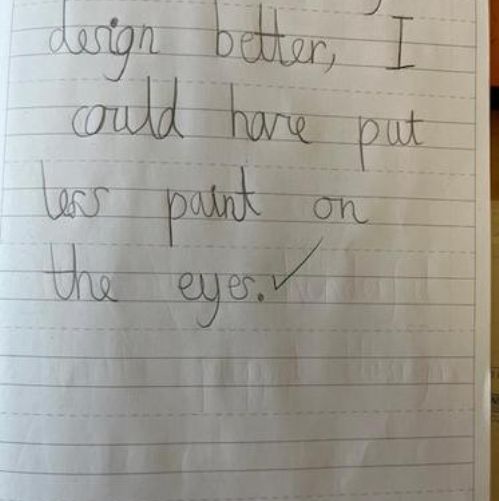 design better, I
could have put
less paint on
the eyes. ✓